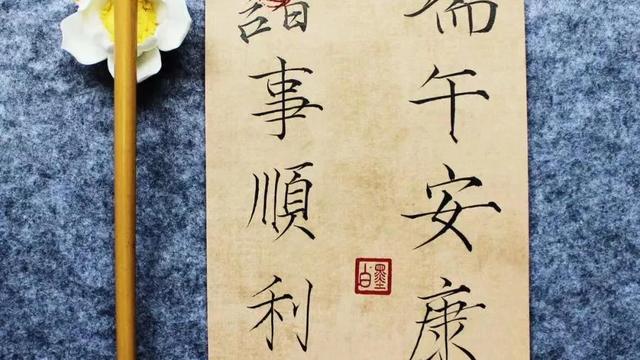 端午安康
諸事順利